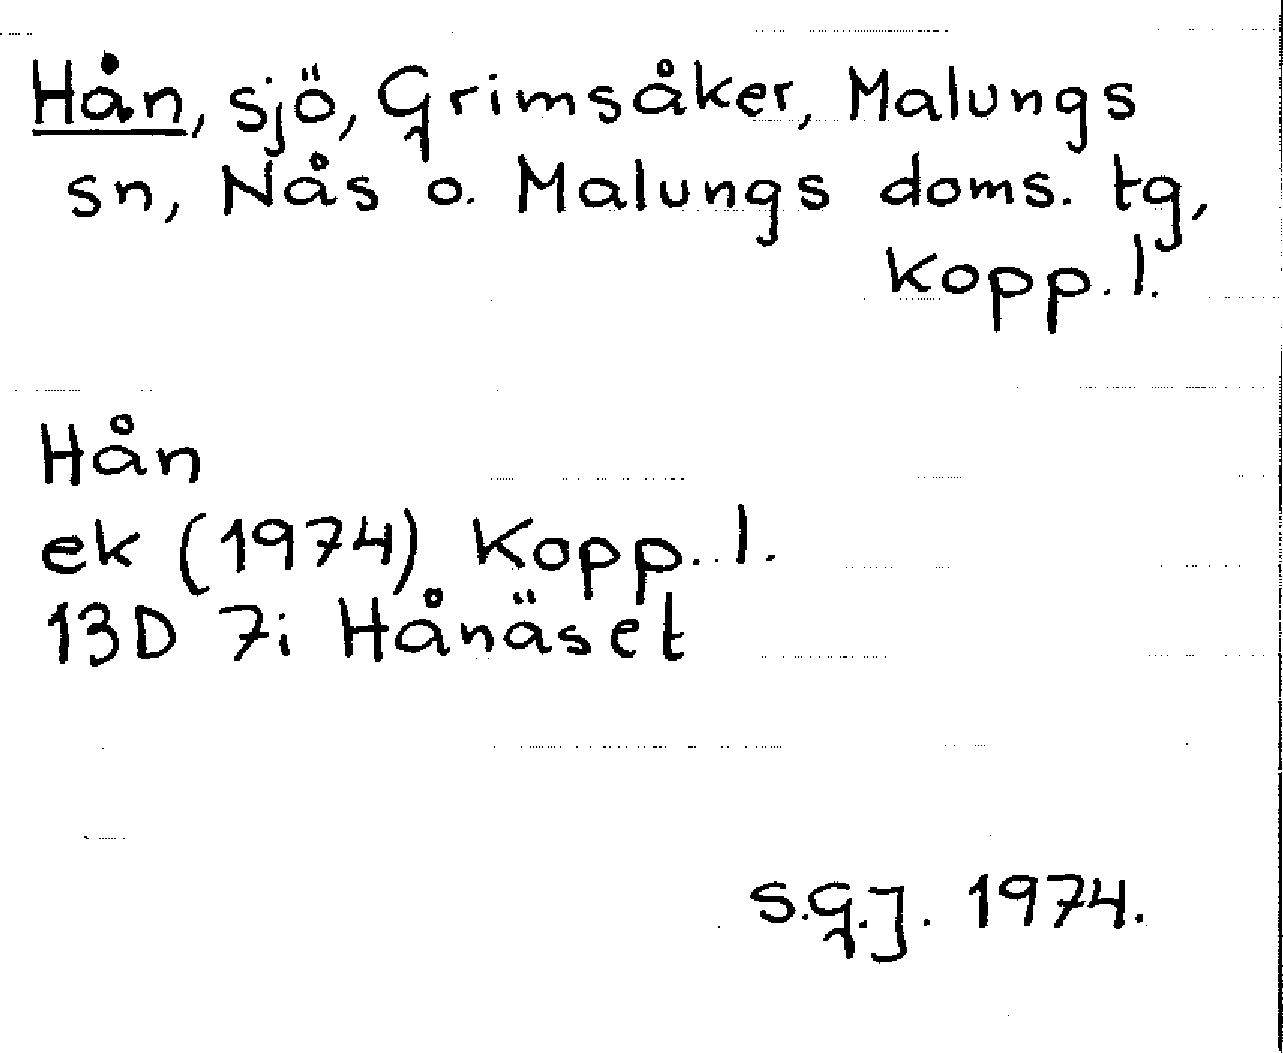 Hån, sjö, Grimsåker, Malungs
sn, Nås o. Malungs doms. tg,
Kopp. l.
Hån
ek (1974) Kopp. l.
13D 7i Hånäset
S.G.J. 1974.